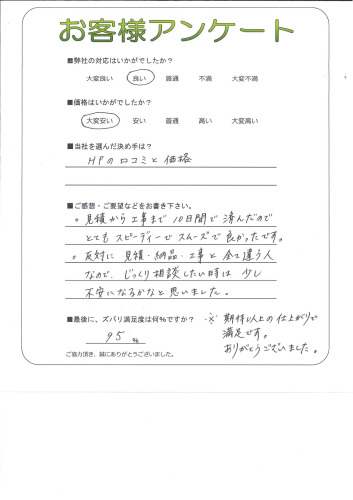 お客様アンケート
■弊社の対応はいかがでしたか？
大変良い 良い 普通 不満 大変不満
■価格はいかがでしたか？
大変安い 安い 普通 高い 大変高い
■当社を選んだ決め手は？
HPの口コミと価格
■ご感想・ご要望などをお書き下さい。
。見積から工事まで10日間で済んだので
とてもスピーディーでスムーズで良かったです。
。反対に見積・納品・工事と全て違う人
なので、じっくり相談したい時は少し
不安になるかなと思いました。
■最後に、ズバリ満足度は何％ですか？
95 ％
※期待以上の仕上がりで
満足です。
ありがとうございました。
ご協力頂き、誠にありがとうございました。